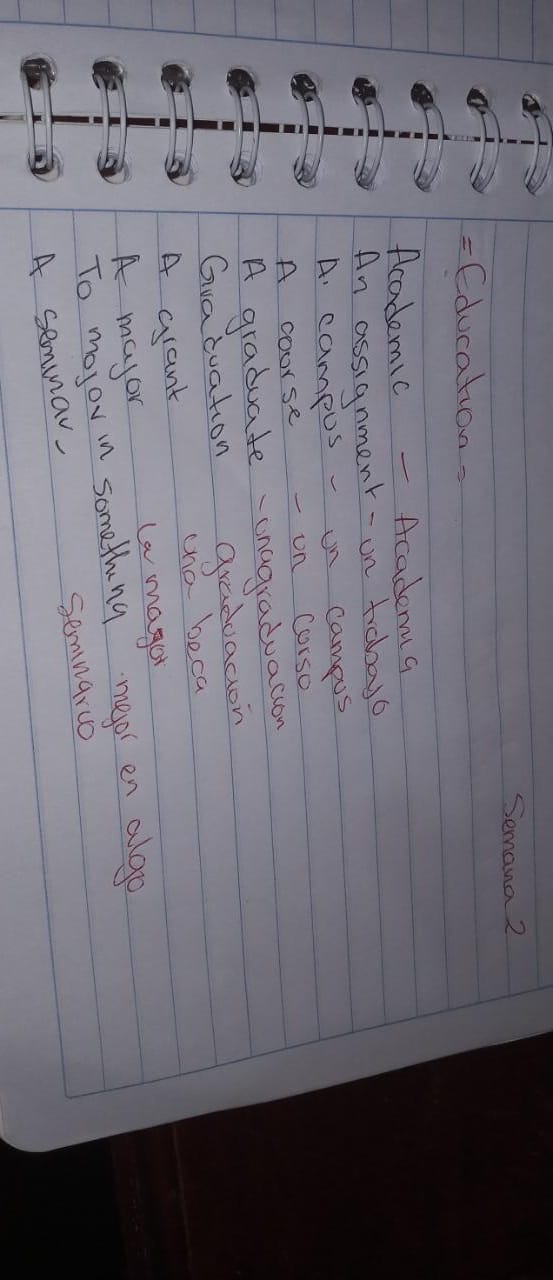 Semana 2
= Education =
Academic - Academia
An assignment - un trabajo
A. campus - un campus
A course - un curso
A graduate - una graduacion
Graduation graduación
A grant una beca
A major la mayor
To major in something . mejor en algo
A seminar - Seminario